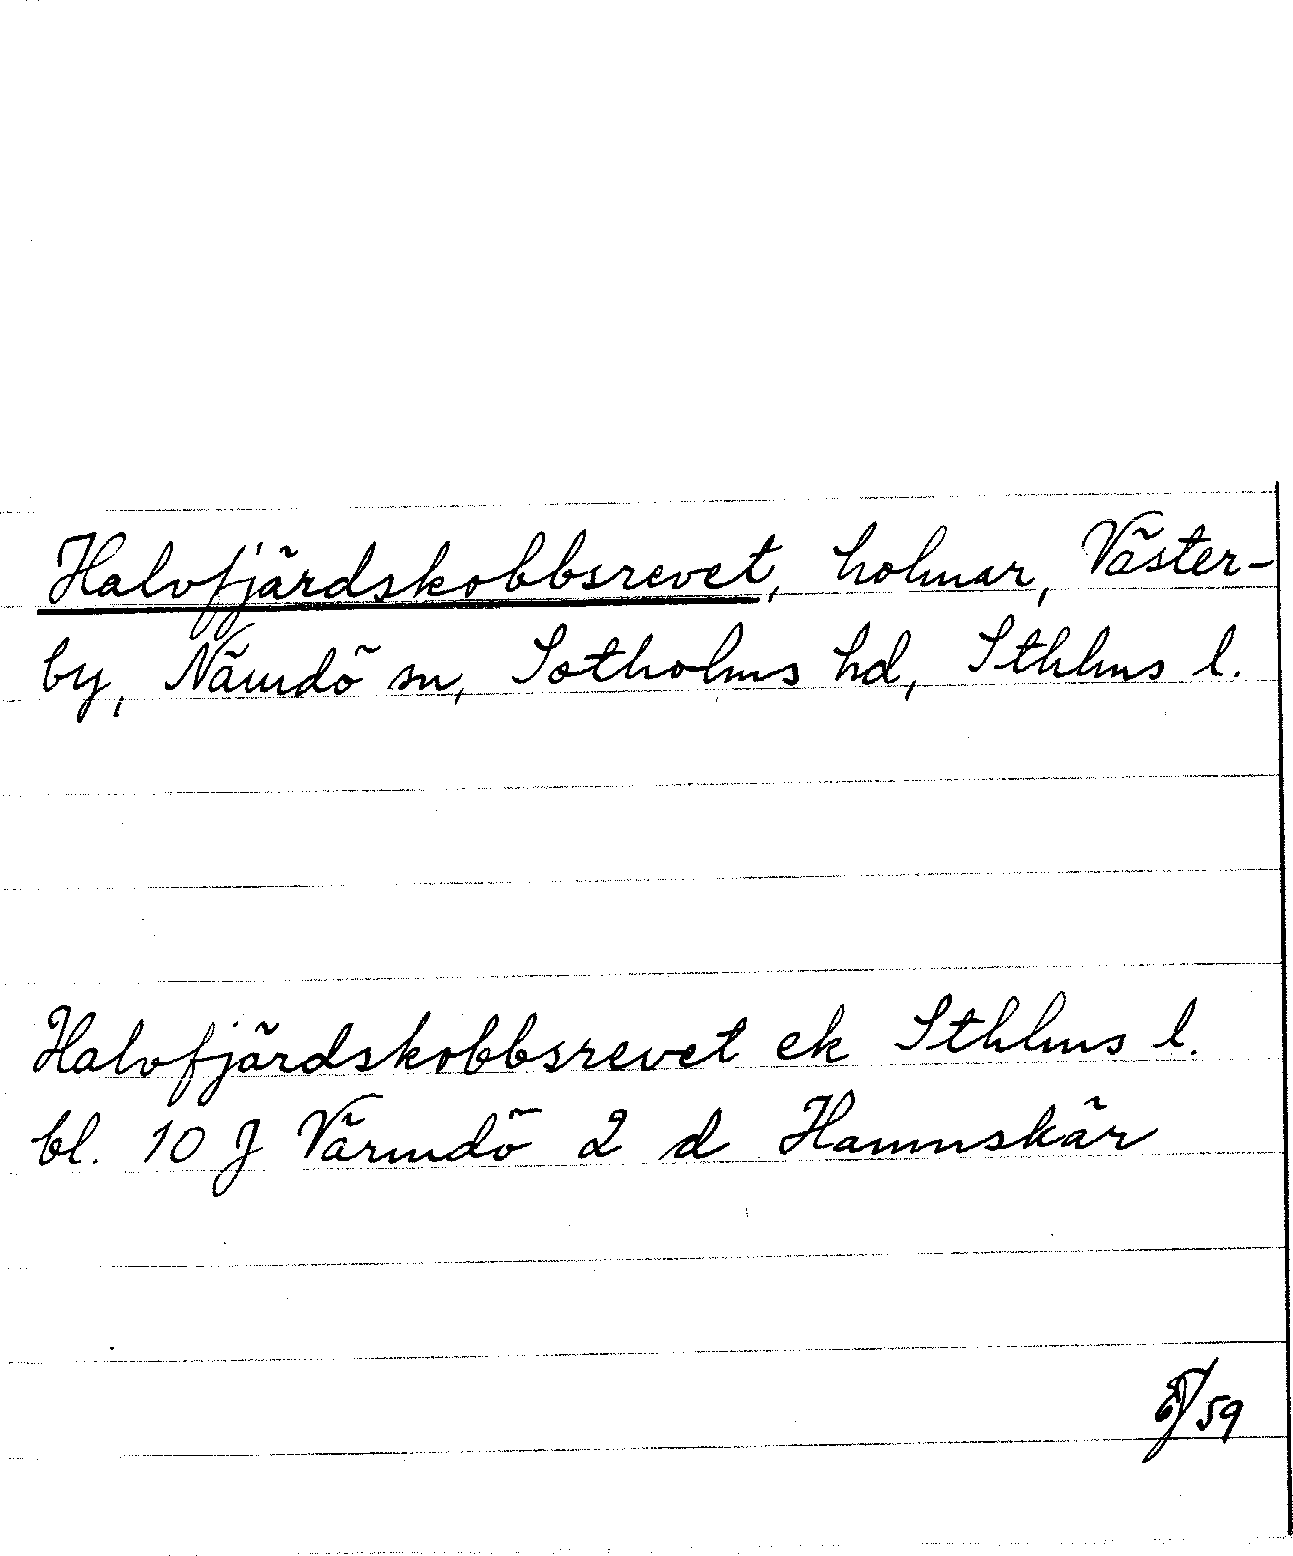 Halvfjärdskobbsrevet, holmar, Väster-
by, Nämdö sn, Sotholms hd, Sthlms l.
Halvfjärdskobbsrevet ek Sthlms l.
bl. 10 J Värmdö 2 d Hamnskär
/59